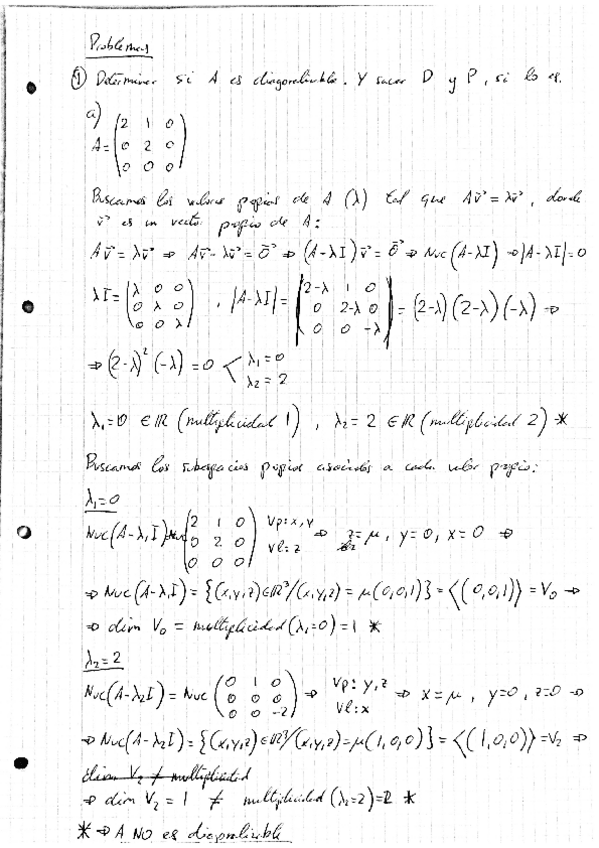 Problemas
① Determinar si A es diagonalizable. Y sacar D y P, si lo es.
a)
A = (2 1 0
0 2 0
0 0 0)
Buscamos los valores propios de A (λ) tal que Av⃗ = λv⃗, donde
v⃗ es un vector propio de A:
Av⃗ = λv⃗ ⇒ Av⃗ - λv⃗ = 0⃗ ⇒ (A-λI)v⃗ = 0⃗ ⇒ Nuc(A-λI) ⇒ |A-λI| = 0
λI = (λ 0 0
0 λ 0
0 0 λ) , |A-λI| = |2-λ 1 0
0 2-λ 0
0 0 -λ| = (2-λ)(2-λ)(-λ) ⇒
⇒ (2-λ)² (-λ) = 0 < λ₁ = 0
λ₂ = 2
λ₁ = 0 ∈ ℝ (multiplicidad 1) , λ₂ = 2 ∈ ℝ (multiplicidad 2) *
Buscamos los subespacios propios asociados a cada valor propio:
λ₁ = 0
Nuc(A-λ₁I) = Nuc (2 1 0
0 2 0
0 0 0) Vp: x, y
Vl: z ⇒ z = μ, y = 0, x = 0 ⇒
⇒ Nuc(A-λ₁I) = {(x,y,z) ∈ ℝ³/(x,y,z) = μ(0,0,1)} = ⟨(0,0,1)⟩ = V₀ ⇒
⇒ dim V₀ = multiplicidad (λ₁=0) = 1 *
λ₂ = 2
Nuc(A-λ₂I) = Nuc (0 1 0
0 0 0
0 0 -2) ⇒ Vp: y, z
Vl: x ⇒ x = μ, y = 0, z = 0 ⇒
⇒ Nuc(A-λ₂I) = {(x,y,z) ∈ ℝ³/(x,y,z) = μ(1,0,0)} = ⟨(1,0,0)⟩ = V₂ ⇒
dim V₂ ≠ multiplicidad
⇒ dim V₂ = 1 ≠ multiplicidad (λ₂=2) = 2 *
* ⇒ A NO es diagonalizable